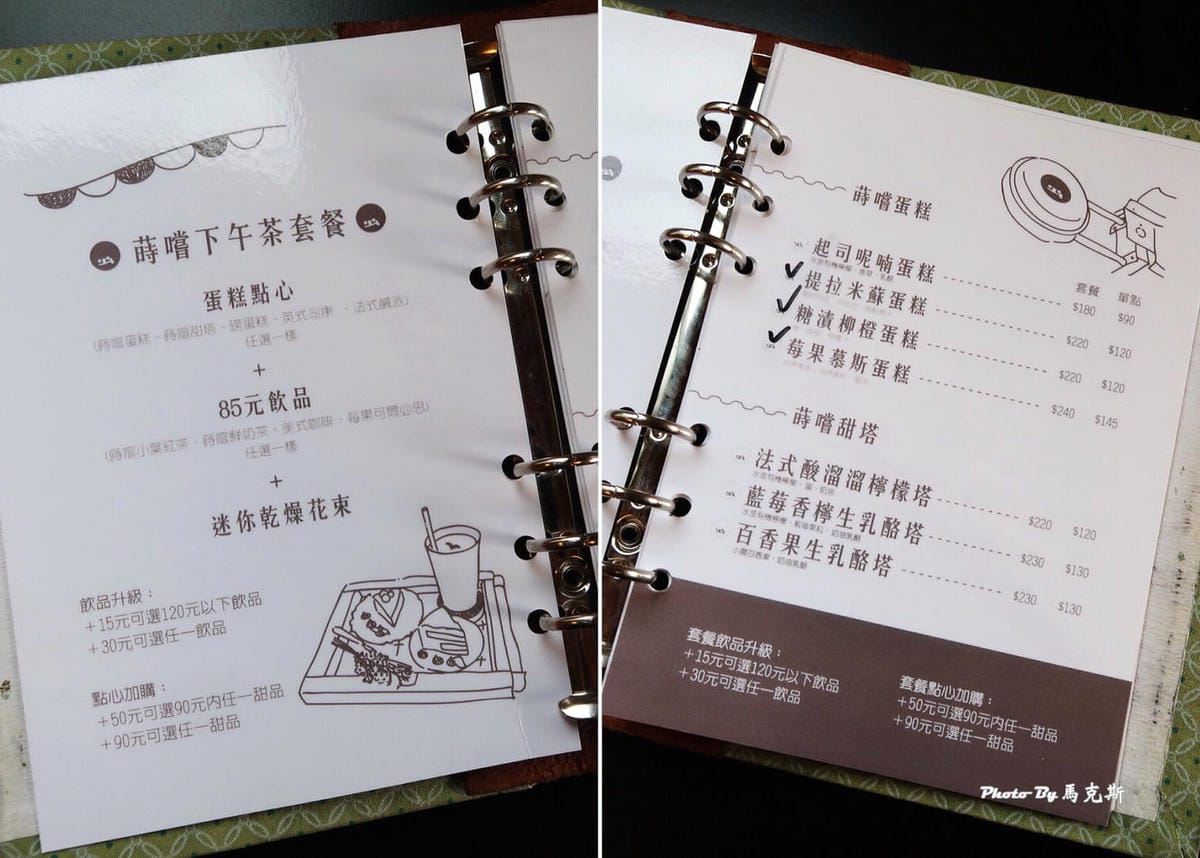 蒔嚐下午茶套餐
蛋糕點心
(蒔嚐蛋糕、蒔嚐甜塔、磅蛋糕、英式司康、法式鹹派)
任選一樣
+
85元飲品
(蒔嚐小葉紅茶、蒔嚐鮮奶茶、美式咖啡、莓果可爾必思)
任選一樣
+
迷你乾燥花束
飲品升級：
+15元可選120元以下飲品
+30元可選任一飲品
點心加購：
+50元可選90元內任一甜品
+90元可選任一甜品
蒔嚐蛋糕
套餐 單點
起司呢喃蛋糕 $180 $90
水里有機檸檬、香草、乳酪
提拉米蘇蛋糕 $220 $120
糖漬柳橙蛋糕 $220 $120
莓果慕斯蛋糕 $240 $145
蒔嚐甜塔
法式酸溜溜檸檬塔 $220 $120
水里有機檸檬、蛋、奶油
藍莓香檸生乳酪塔 $230 $130
水里有機檸檬、藍莓果粒、奶油乳酪
百香果生乳酪塔 $230 $130
小農百香果、奶油乳酪
套餐飲品升級：
+15元可選120元以下飲品
+30元可選任一飲品
套餐點心加購：
+50元可選90元內任一甜品
+90元可選任一甜品
Photo By 馬克斯